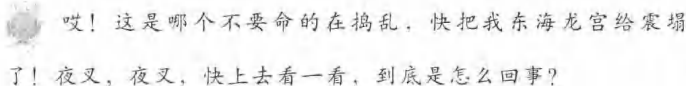 哎！这是哪个不要命的在捣乱，快把我东海龙宫给震塌
了！夜叉，夜叉，快上去看一看，到底是怎么回事？